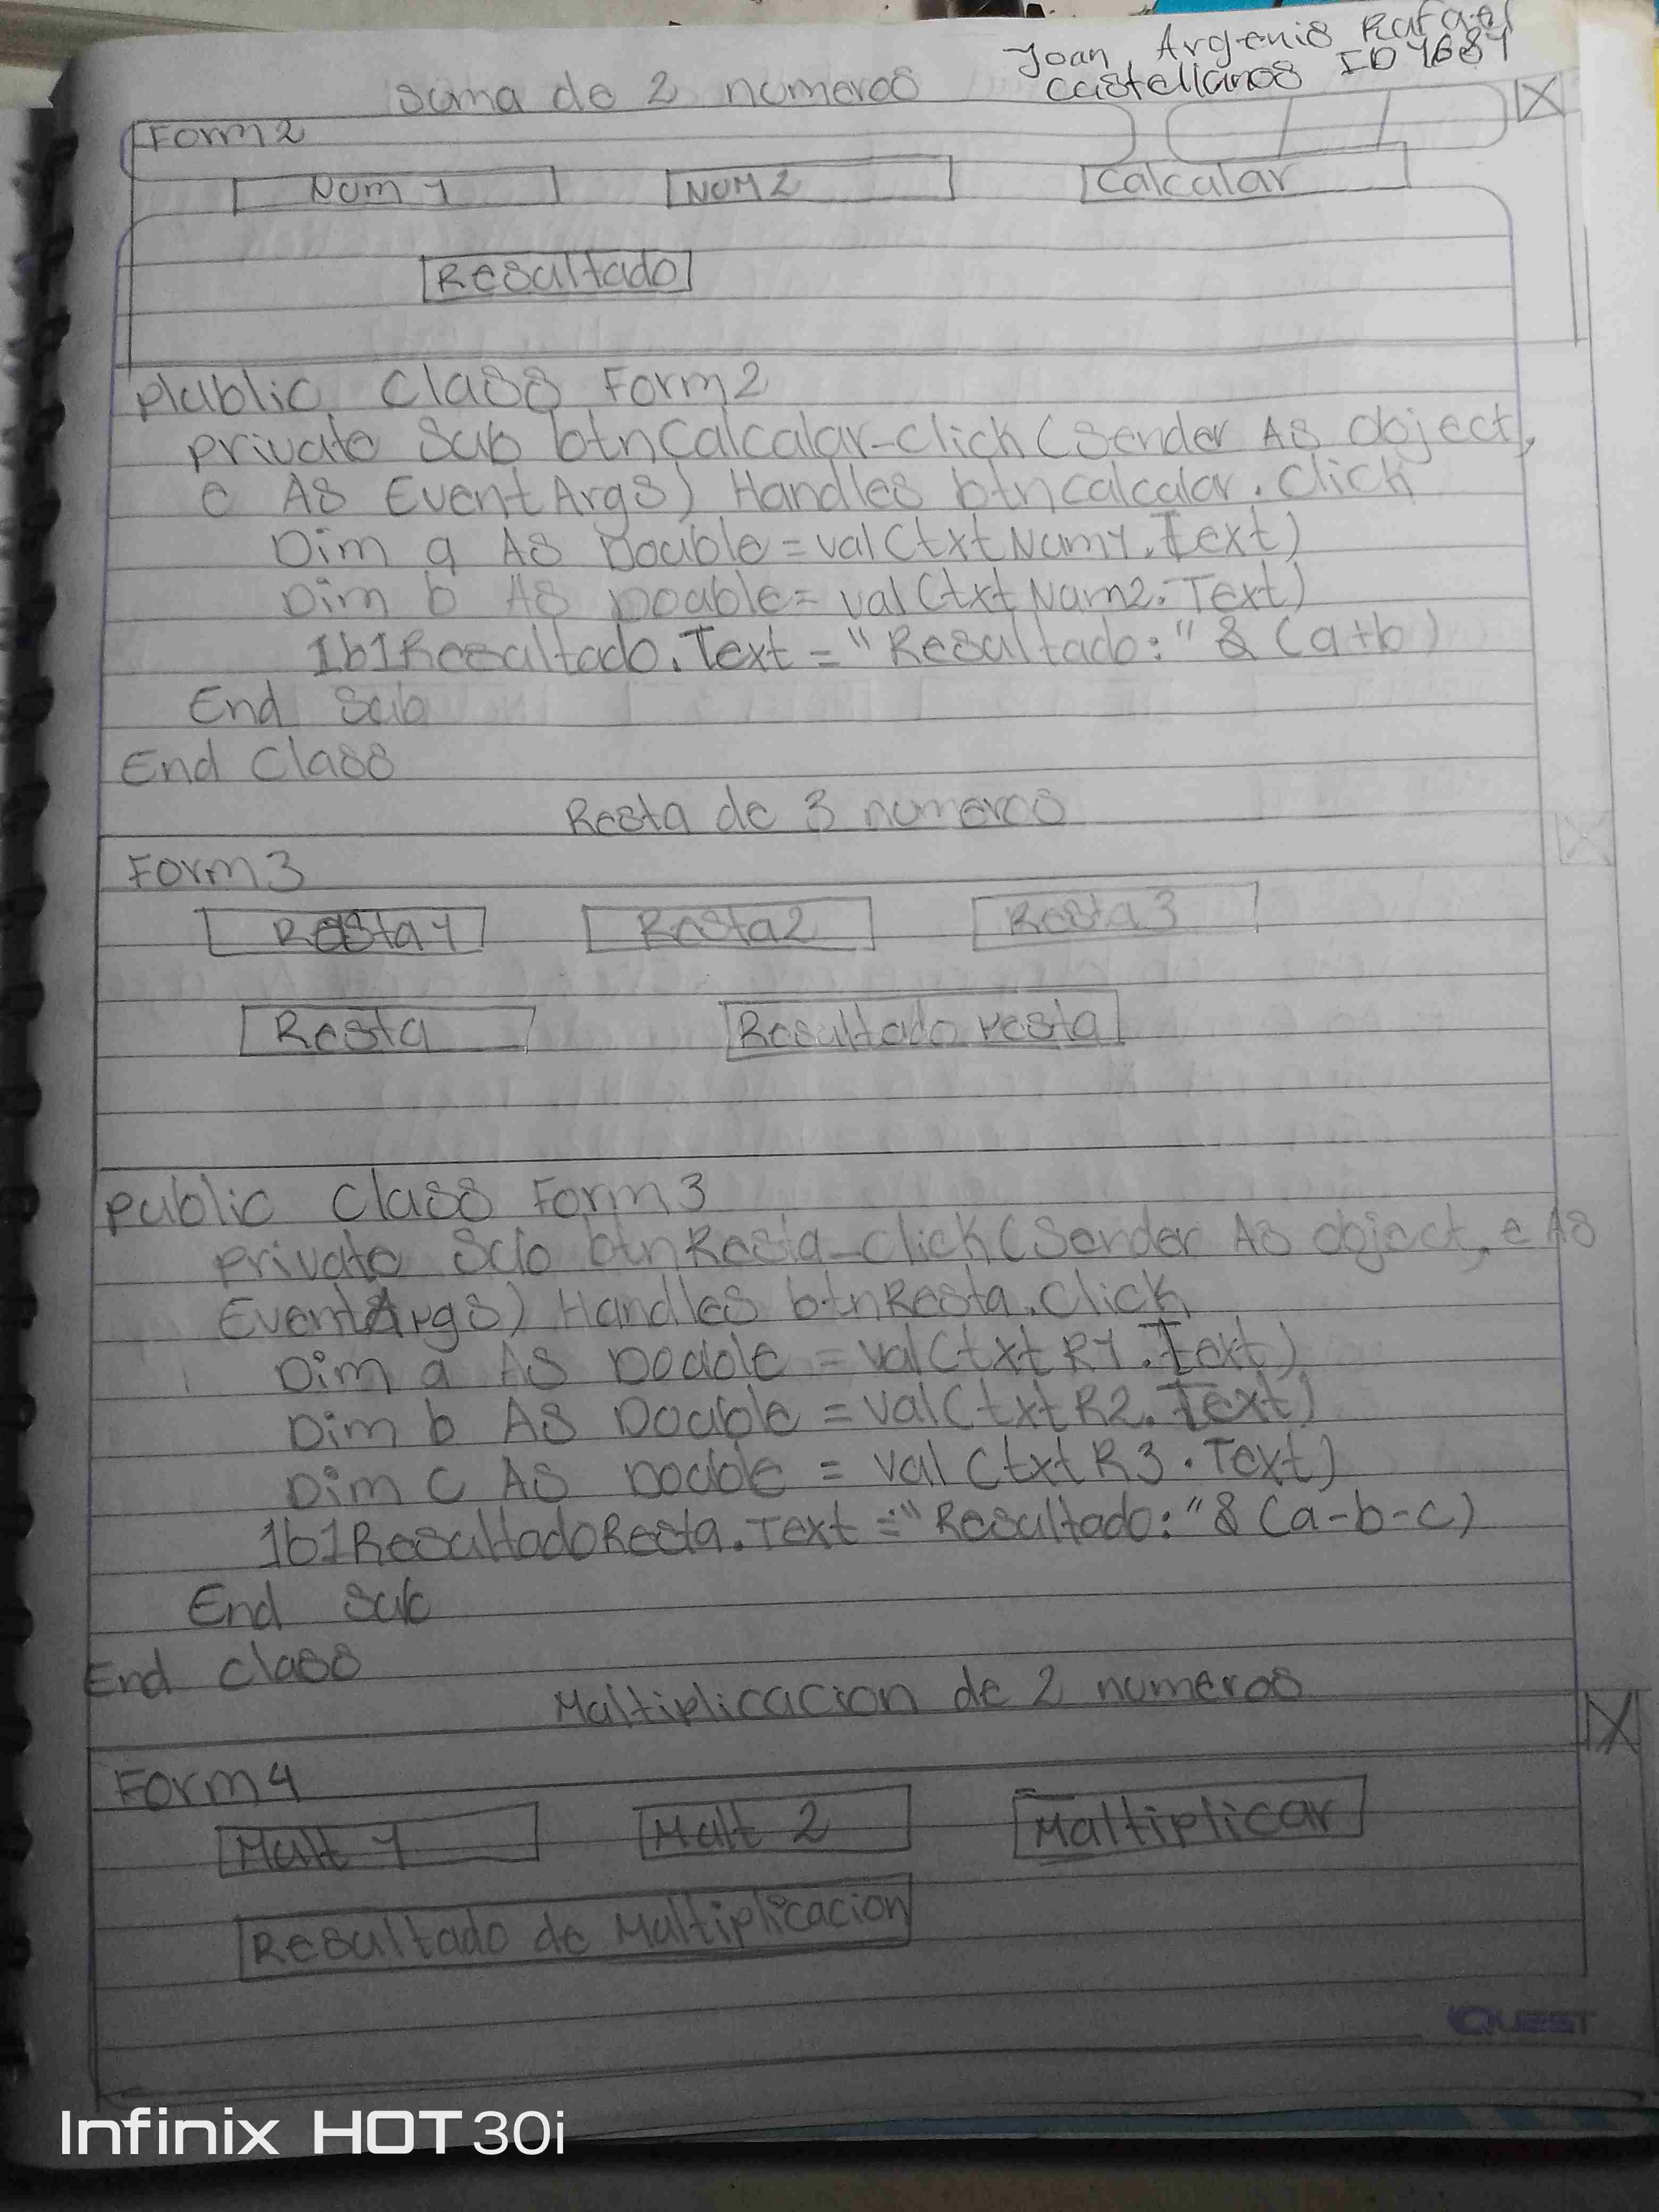 Joan Argenis Rafael
Castellanos ID 1687
Suma de 2 numeros
Form2
Num 1 Num 2 Calcular
Resultado
Public Class Form2
Private Sub btnCalcular_Click(Sender As Object,
e As EventArgs) Handles btnCalcular.Click
Dim a As Double = Val(txtNum1.Text)
Dim b As Double = Val(txtNum2.Text)
lblResultado.Text = "Resultado:" & (a+b)
End Sub
End Class
Resta de 3 numeros
Form3
Resta1 Resta2 Resta3
Resta Resultado resta
Public Class Form3
Private Sub btnResta_Click(Sender As object, e As
EventArgs) Handles btnResta.Click
Dim a As Double = Val(txtR1.Text)
Dim b As Double = Val(txtR2.Text)
Dim c As Double = Val(txtR3.Text)
lblResultadoResta.Text = "Resultado:" & (a-b-c)
End Sub
End Class
Multiplicacion de 2 numeros
Form4
Mult 1 Mult 2 Multiplicar
Resultado de Multiplicacion
QUEST
Infinix HOT 30i